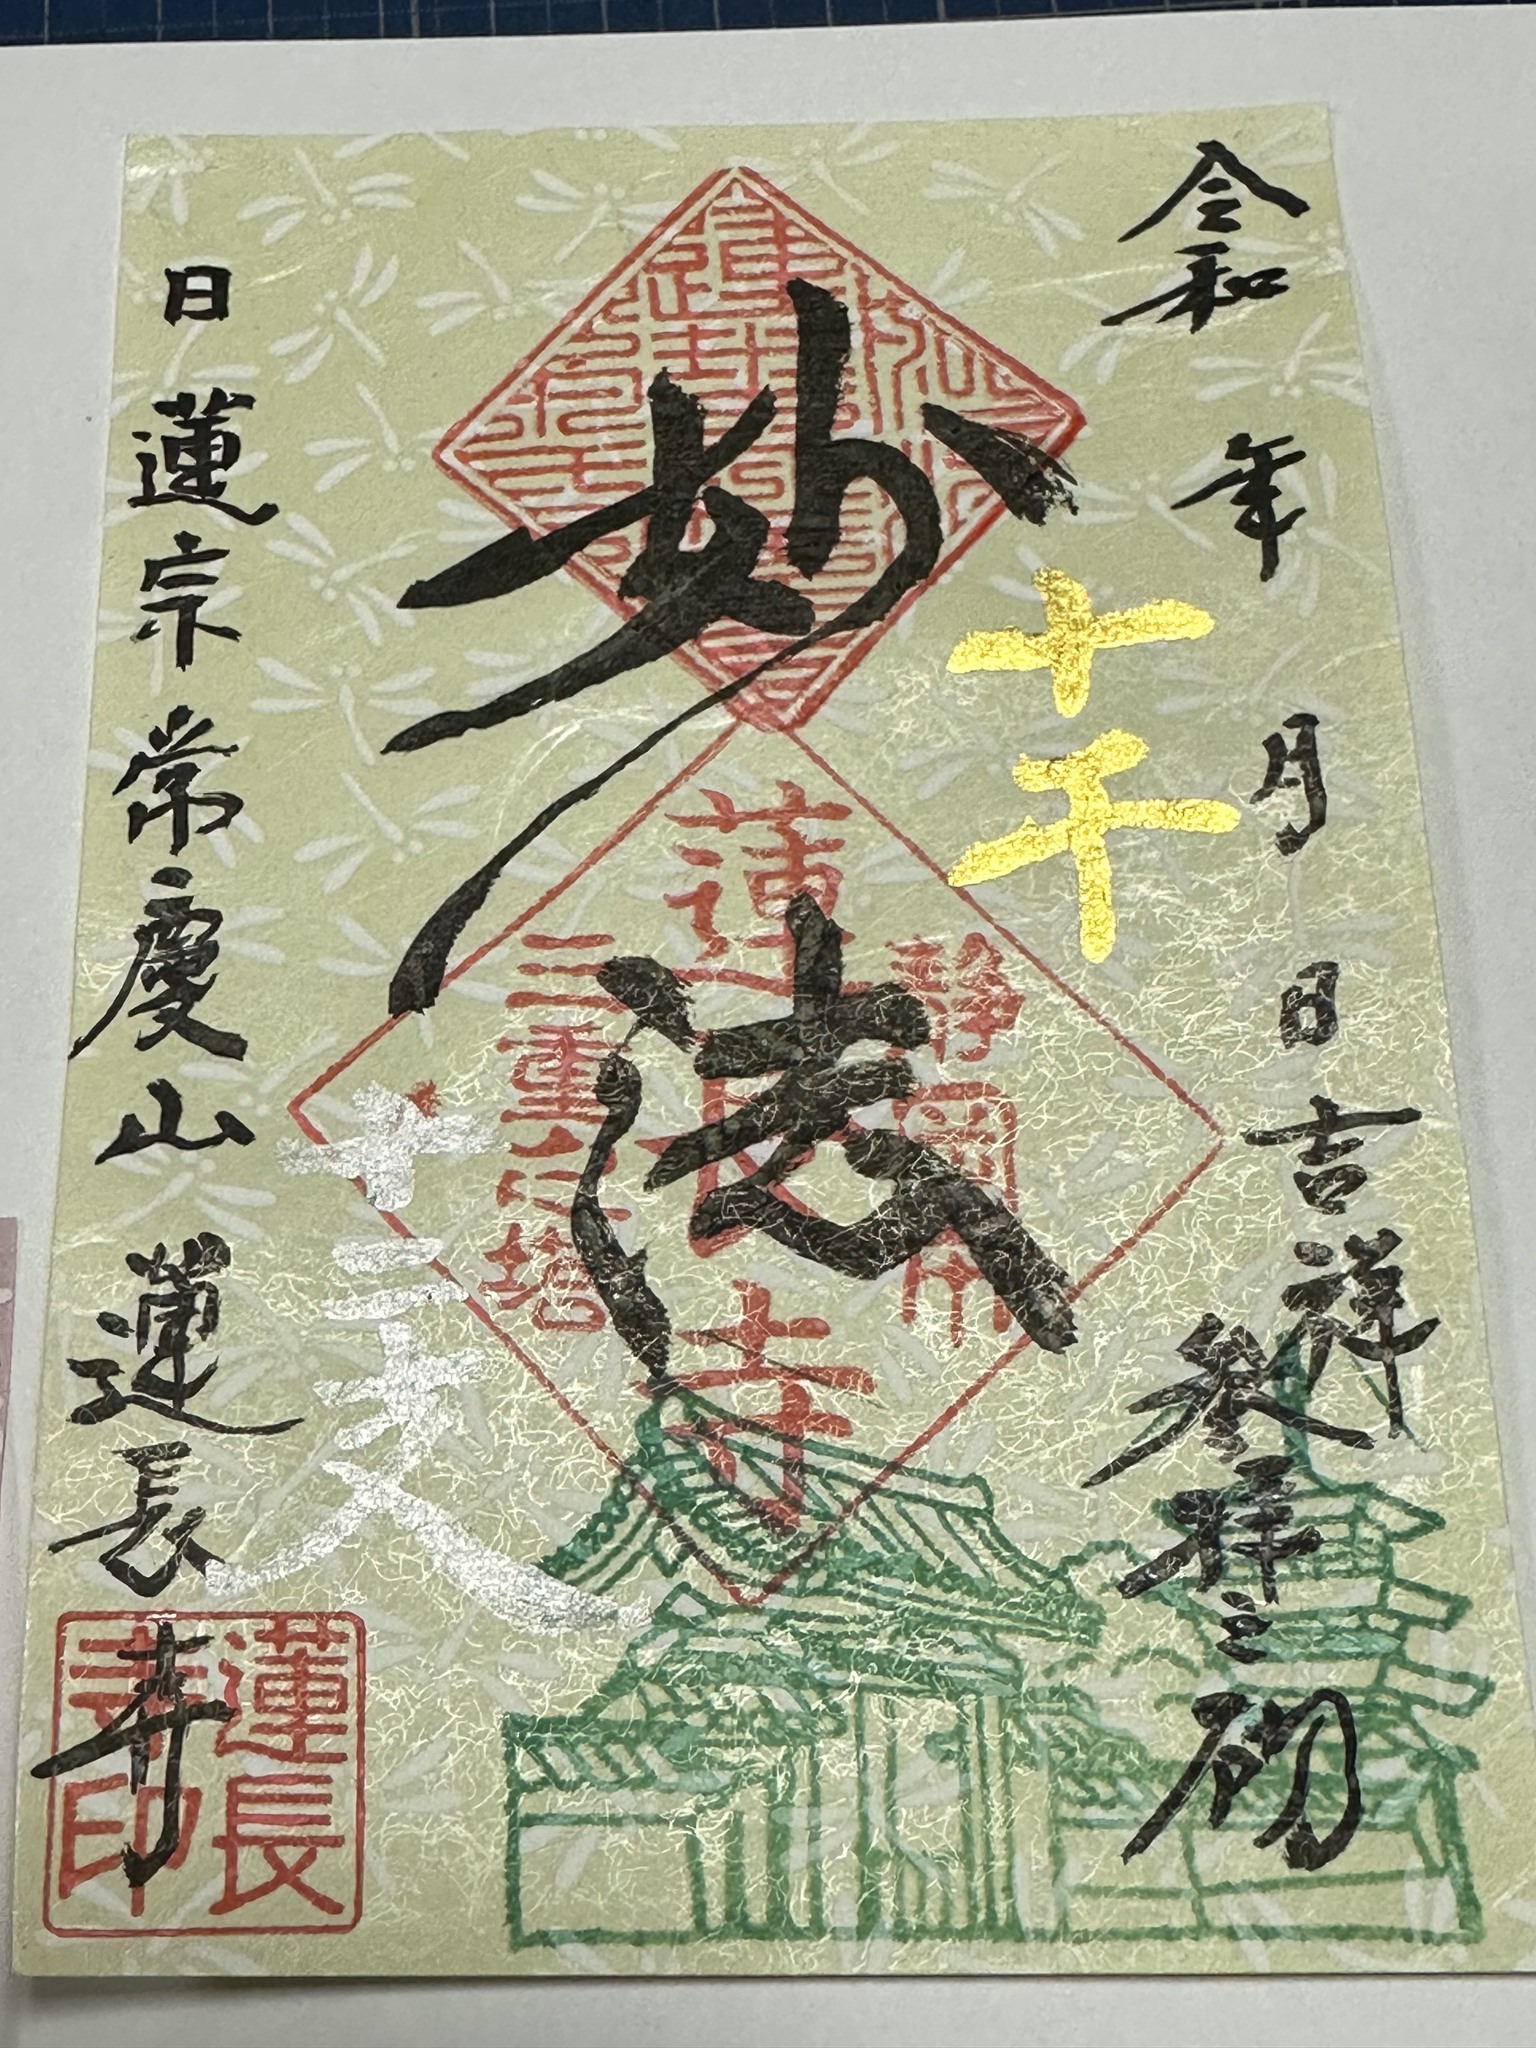 令和 年 月 日 吉祥
拝之砌
十干
妙法
静岡市
蓮長寺
三重之塔
十二支
日蓮宗 常慶山 蓮長寺
蓮長寺印